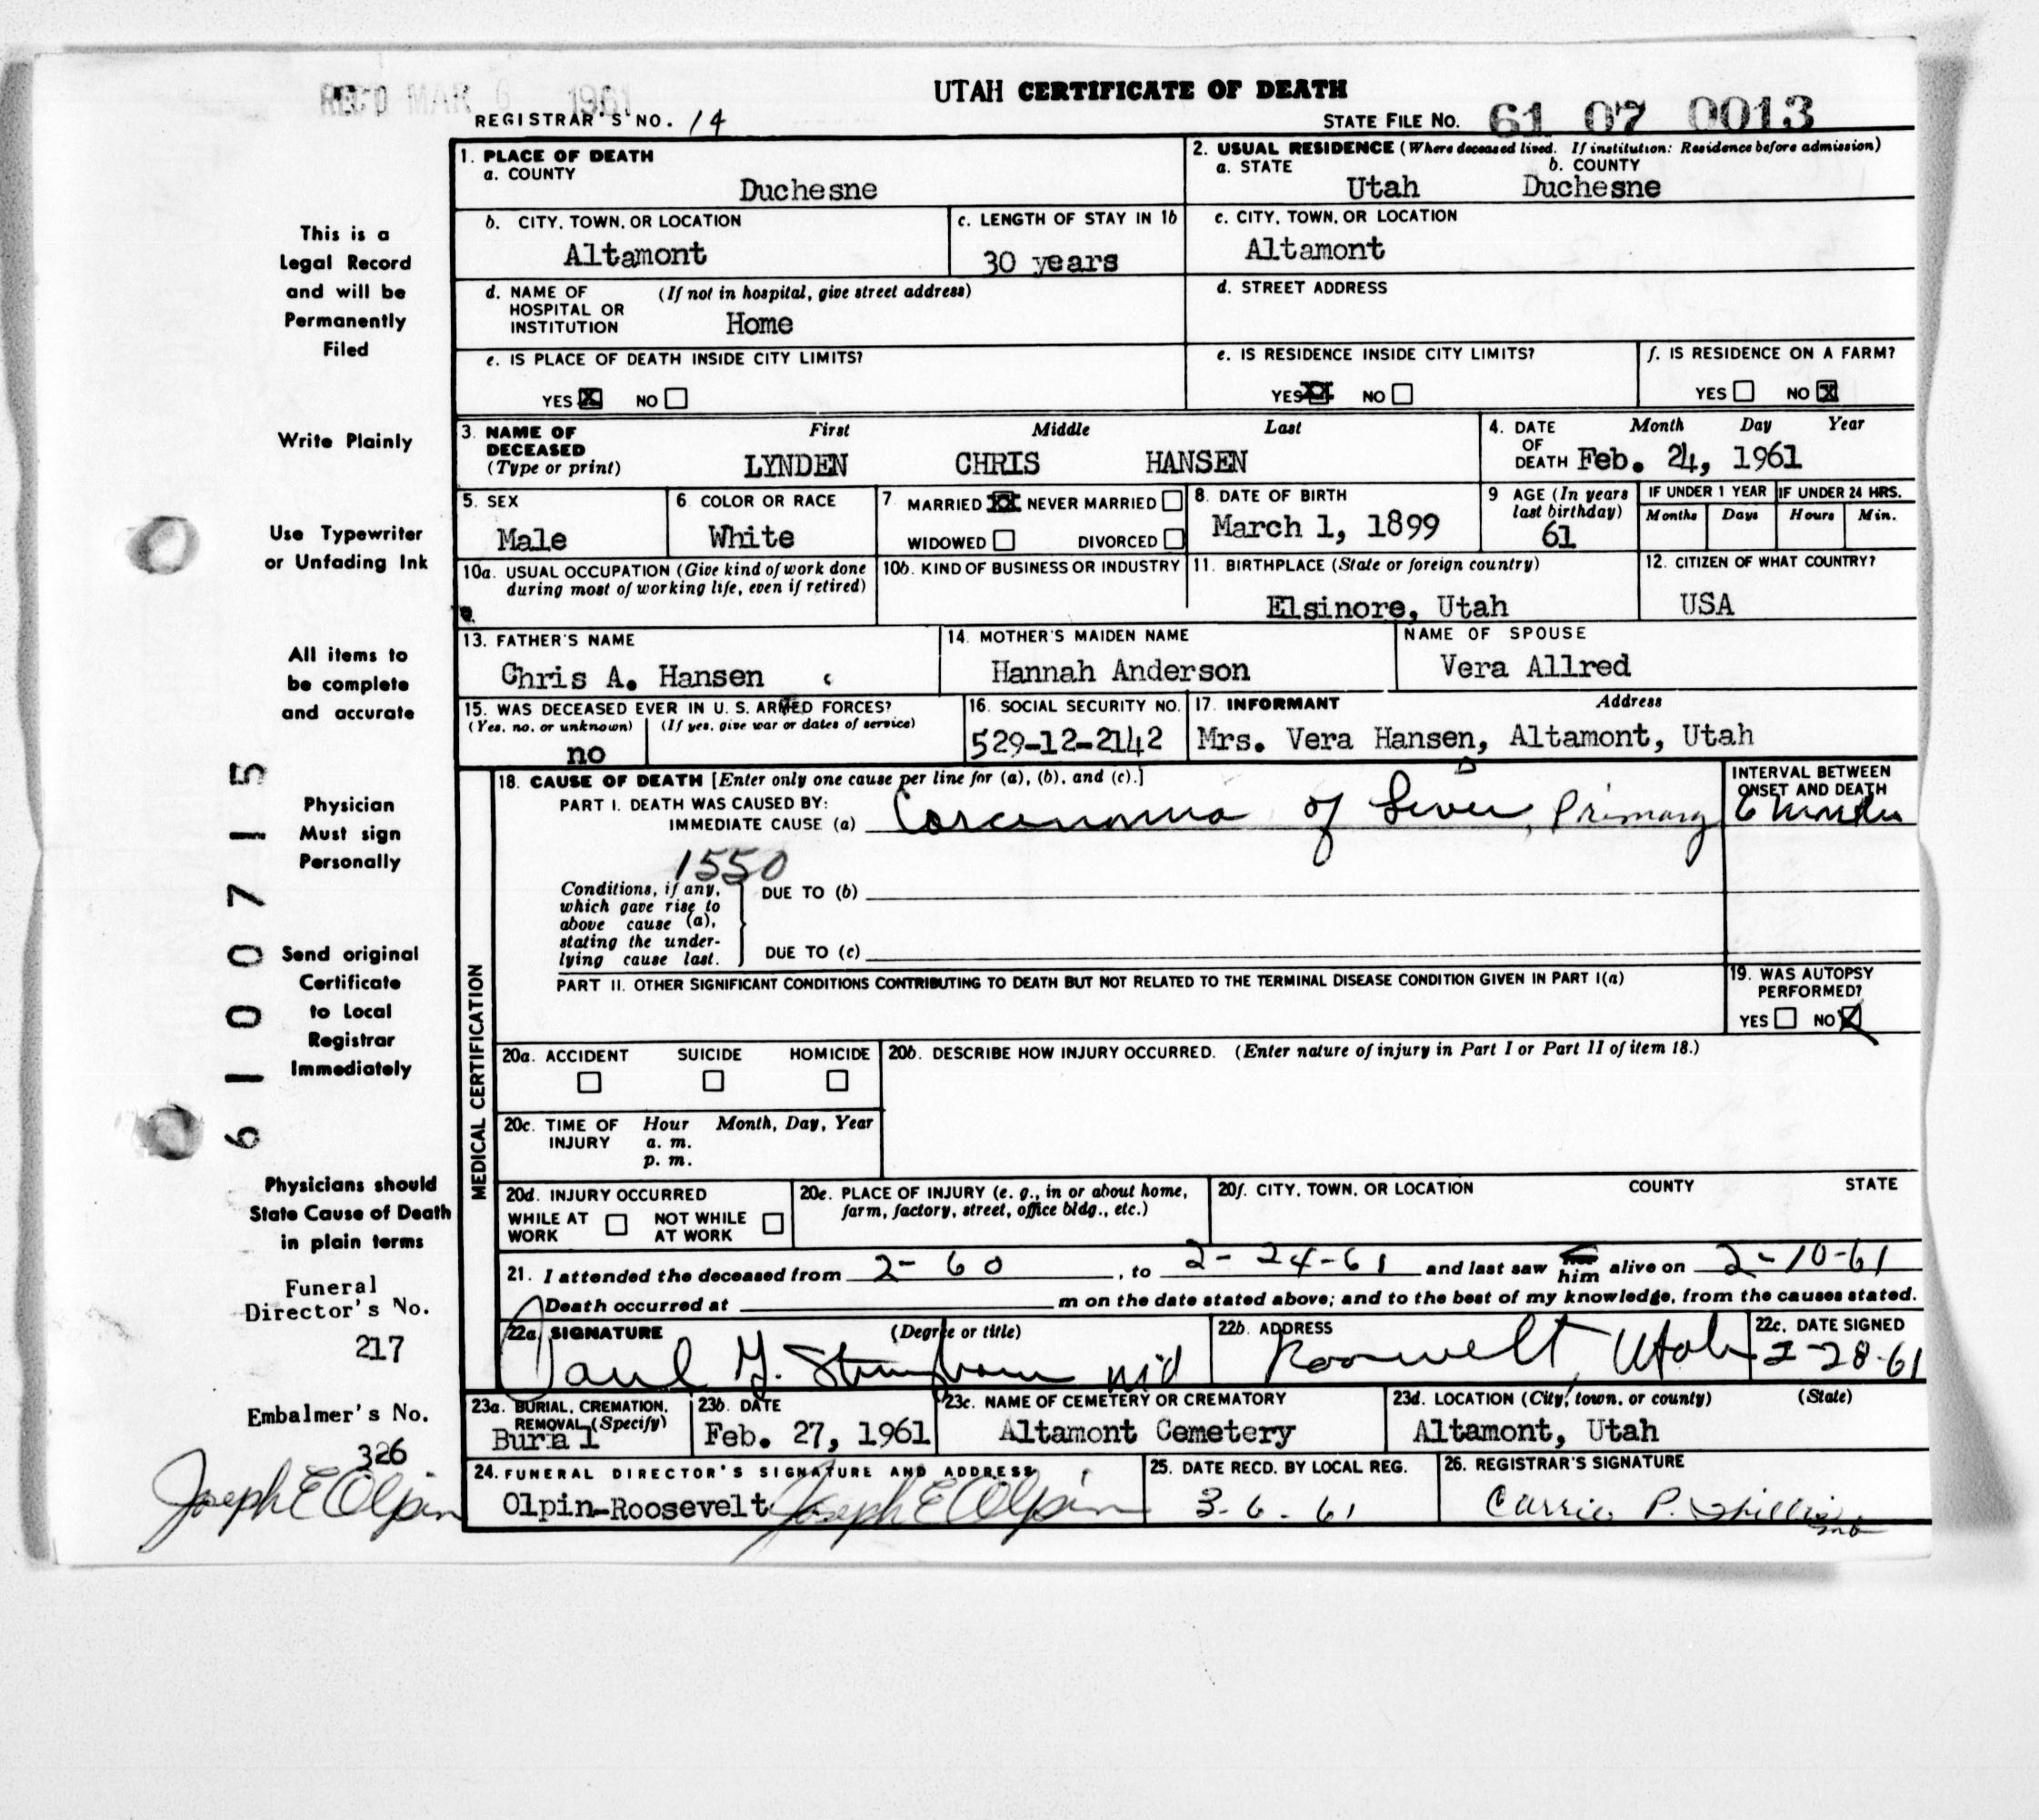 REC'D MAR 6 1961
UTAH CERTIFICATE OF DEATH
REGISTRAR'S NO. 14
STATE FILE No. 61 07 0013
1. PLACE OF DEATH
a. COUNTY
Duchesne
2. USUAL RESIDENCE (Where deceased lived. If institution: Residence before admission)
a. STATE b. COUNTY
Utah Duchesne
b. CITY, TOWN, OR LOCATION
Altamont
c. LENGTH OF STAY IN 1b
30 years
c. CITY, TOWN, OR LOCATION
Altamont
d. NAME OF (If not in hospital, give street address)
HOSPITAL OR
INSTITUTION Home
d. STREET ADDRESS
e. IS PLACE OF DEATH INSIDE CITY LIMITS?
YES X NO
e. IS RESIDENCE INSIDE CITY LIMITS?
YES XX NO
f. IS RESIDENCE ON A FARM?
YES NO X
3. NAME OF First Middle Last
DECEASED
(Type or print) LYNDEN CHRIS HANSEN
4. DATE Month Day Year
OF
DEATH Feb. 24, 1961
5. SEX
Male
6. COLOR OR RACE
White
7. MARRIED XX NEVER MARRIED
WIDOWED DIVORCED
8. DATE OF BIRTH
March 1, 1899
9 AGE (In years
last birthday)
61
IF UNDER 1 YEAR IF UNDER 24 HRS.
Months Days Hours Min.
10a. USUAL OCCUPATION (Give kind of work done
during most of working life, even if retired)
10b. KIND OF BUSINESS OR INDUSTRY
11. BIRTHPLACE (State or foreign country)
Elsinore, Utah
12. CITIZEN OF WHAT COUNTRY?
USA
13. FATHER'S NAME
Chris A. Hansen
14. MOTHER'S MAIDEN NAME
Hannah Anderson
NAME OF SPOUSE
Vera Allred
15. WAS DECEASED EVER IN U. S. ARMED FORCES?
(Yes, no, or unknown) (If yes, give war or dates of service)
no
16. SOCIAL SECURITY NO.
529-12-2142
17. INFORMANT Address
Mrs. Vera Hansen, Altamont, Utah
MEDICAL CERTIFICATION
18. CAUSE OF DEATH [Enter only one cause per line for (a), (b), and (c).]
PART I. DEATH WAS CAUSED BY:
IMMEDIATE CAUSE (a) Carcinoma of Liver, Primary
INTERVAL BETWEEN
ONSET AND DEATH
6 months
1550
Conditions, if any,
which gave rise to
above cause (a),
stating the under-
lying cause last.
DUE TO (b)
DUE TO (c)
PART II. OTHER SIGNIFICANT CONDITIONS CONTRIBUTING TO DEATH BUT NOT RELATED TO THE TERMINAL DISEASE CONDITION GIVEN IN PART I(a)
19. WAS AUTOPSY
PERFORMED?
YES NO X
20a. ACCIDENT SUICIDE HOMICIDE
20b. DESCRIBE HOW INJURY OCCURRED. (Enter nature of injury in Part I or Part II of item 18.)
20c. TIME OF Hour Month, Day, Year
INJURY a. m.
p. m.
20d. INJURY OCCURRED
WHILE AT NOT WHILE
WORK AT WORK
20e. PLACE OF INJURY (e. g., in or about home,
farm, factory, street, office bldg., etc.)
20f. CITY, TOWN, OR LOCATION COUNTY STATE
21. I attended the deceased from 2- 60, to 2-24-61 and last saw her him alive on 2-10-61
Death occurred at m on the date stated above; and to the best of my knowledge, from the causes stated.
22a. SIGNATURE (Degree or title)
Paul G. Stringham md
22b. ADDRESS
Roosevelt, Utah
22c. DATE SIGNED
2-28-61
23a. BURIAL, CREMATION,
REMOVAL (Specify)
Burial
23b. DATE
Feb. 27, 1961
23c. NAME OF CEMETERY OR CREMATORY
Altamont Cemetery
23d. LOCATION (City, town, or county) (State)
Altamont, Utah
24. FUNERAL DIRECTOR'S SIGNATURE AND ADDRESS
Olpin-Roosevelt Joseph E Olpin
25. DATE RECD. BY LOCAL REG.
3-6-61
26. REGISTRAR'S SIGNATURE
Carrie P.
This is a
Legal Record
and will be
Permanently
Filed
Write Plainly
Use Typewriter
or Unfading Ink
All items to
be complete
and accurate
Physician
Must sign
Personally
Send original
Certificate
to Local
Registrar
Immediately
Physicians should
State Cause of Death
in plain terms
Funeral
Director's No.
217
Embalmer's No.
326
Joseph E Olpin
6100715